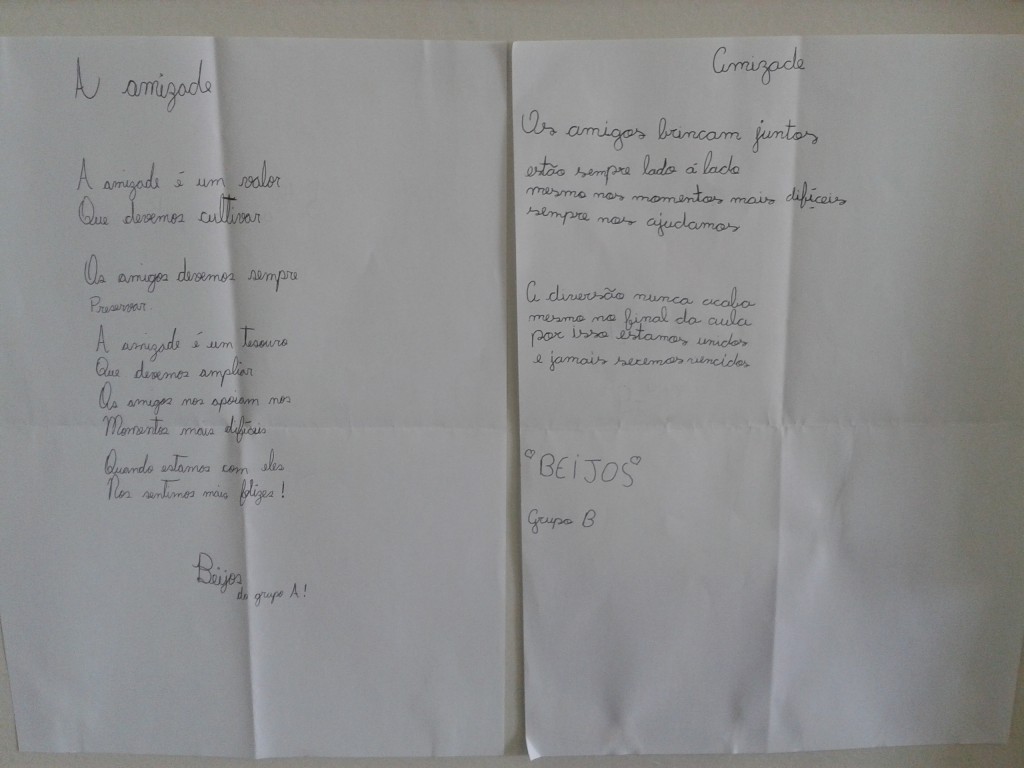 A amizade
A amizade é um valor
Que devemos cultivar
Os amigos devemos sempre
Preservar.
A amizade é um tesouro
Que devemos ampliar
Os amigos nos apoiam nos
Momentos mais difíceis
Quando estamos com eles
Nos sentimos mais felizes!
Beijos
do grupo A!
Amizade
Os amigos brincam juntos
estão sempre lado á lado
mesmo nos momentos mais difíceis
sempre nos ajudamos
A diversão nunca acaba
mesmo no final da aula
por isso estamos unidos
e jamais seremos vencidos
BEIJOS
Grupo B